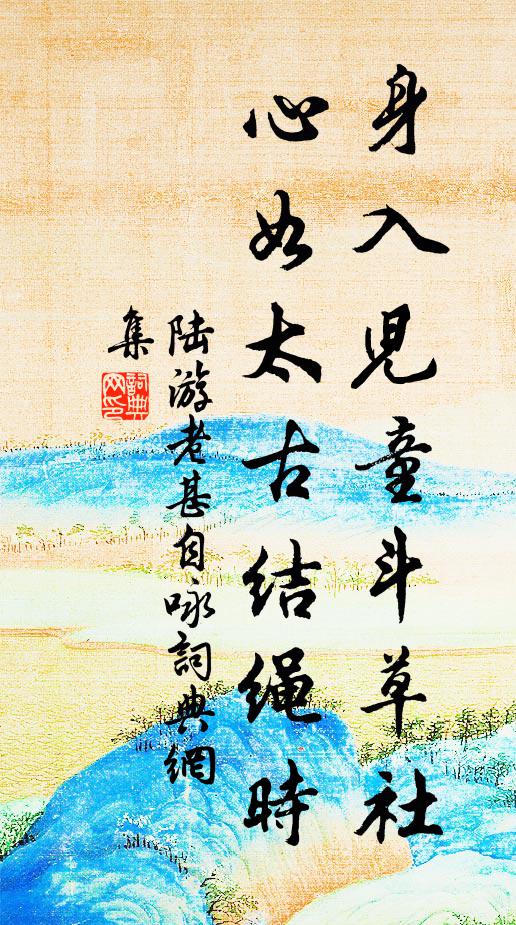 身入児童斗草社
心如太古结绳時
陆游老甚自咏詞典網
集
詞典网印